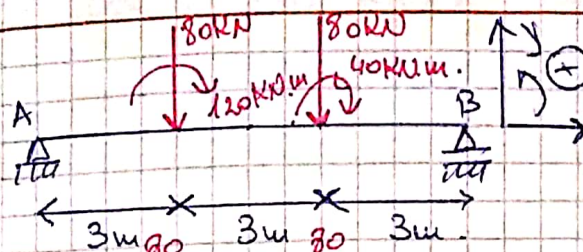 80KN 80KN y
120KN.m 40KN.m. +
A B
3m 3m 3m.
80 80